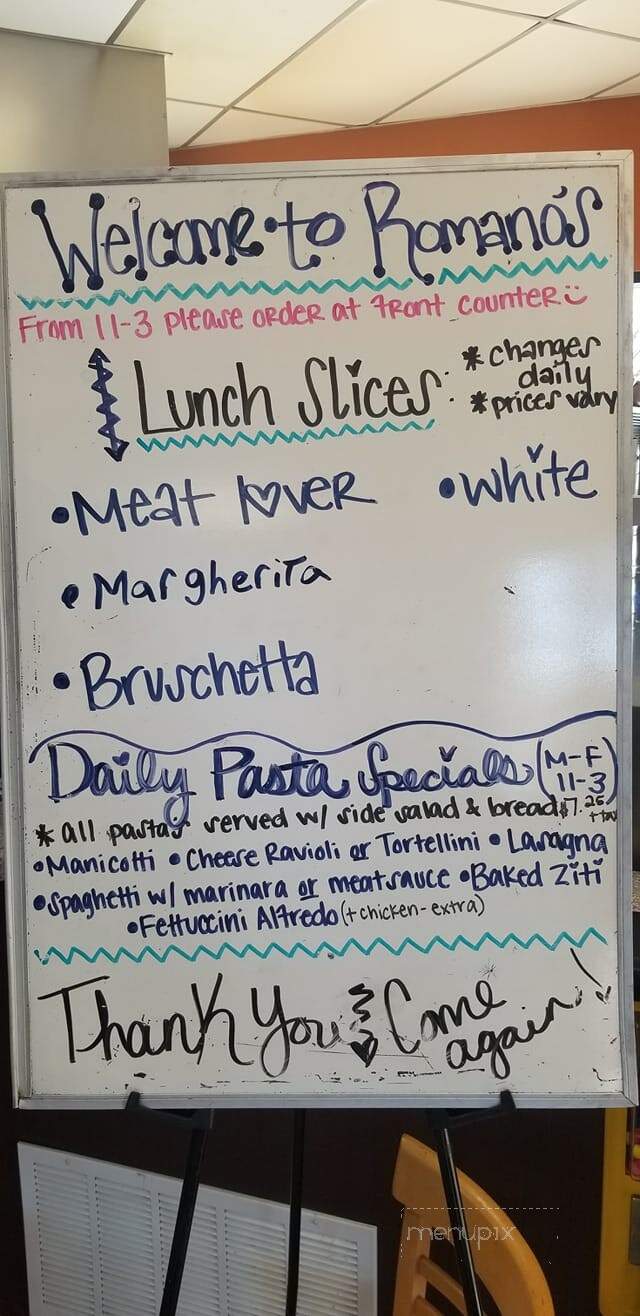 Welcome to Romano's
From 11-3 please order at front counter
Lunch Slices: *changes daily
*prices vary
•Meat lover •White
•Margherita
•Bruschetta
Daily Pasta Specials (M-F 11-3)
*all pastas served w/ side salad & bread $7.25 + tax
•Manicotti •Cheese Ravioli or Tortellini •Lasagna
•Spaghetti w/ marinara or meatsauce •Baked Ziti
•Fettuccini Alfredo (+chicken-extra)
Thank You & Come again!
menupix